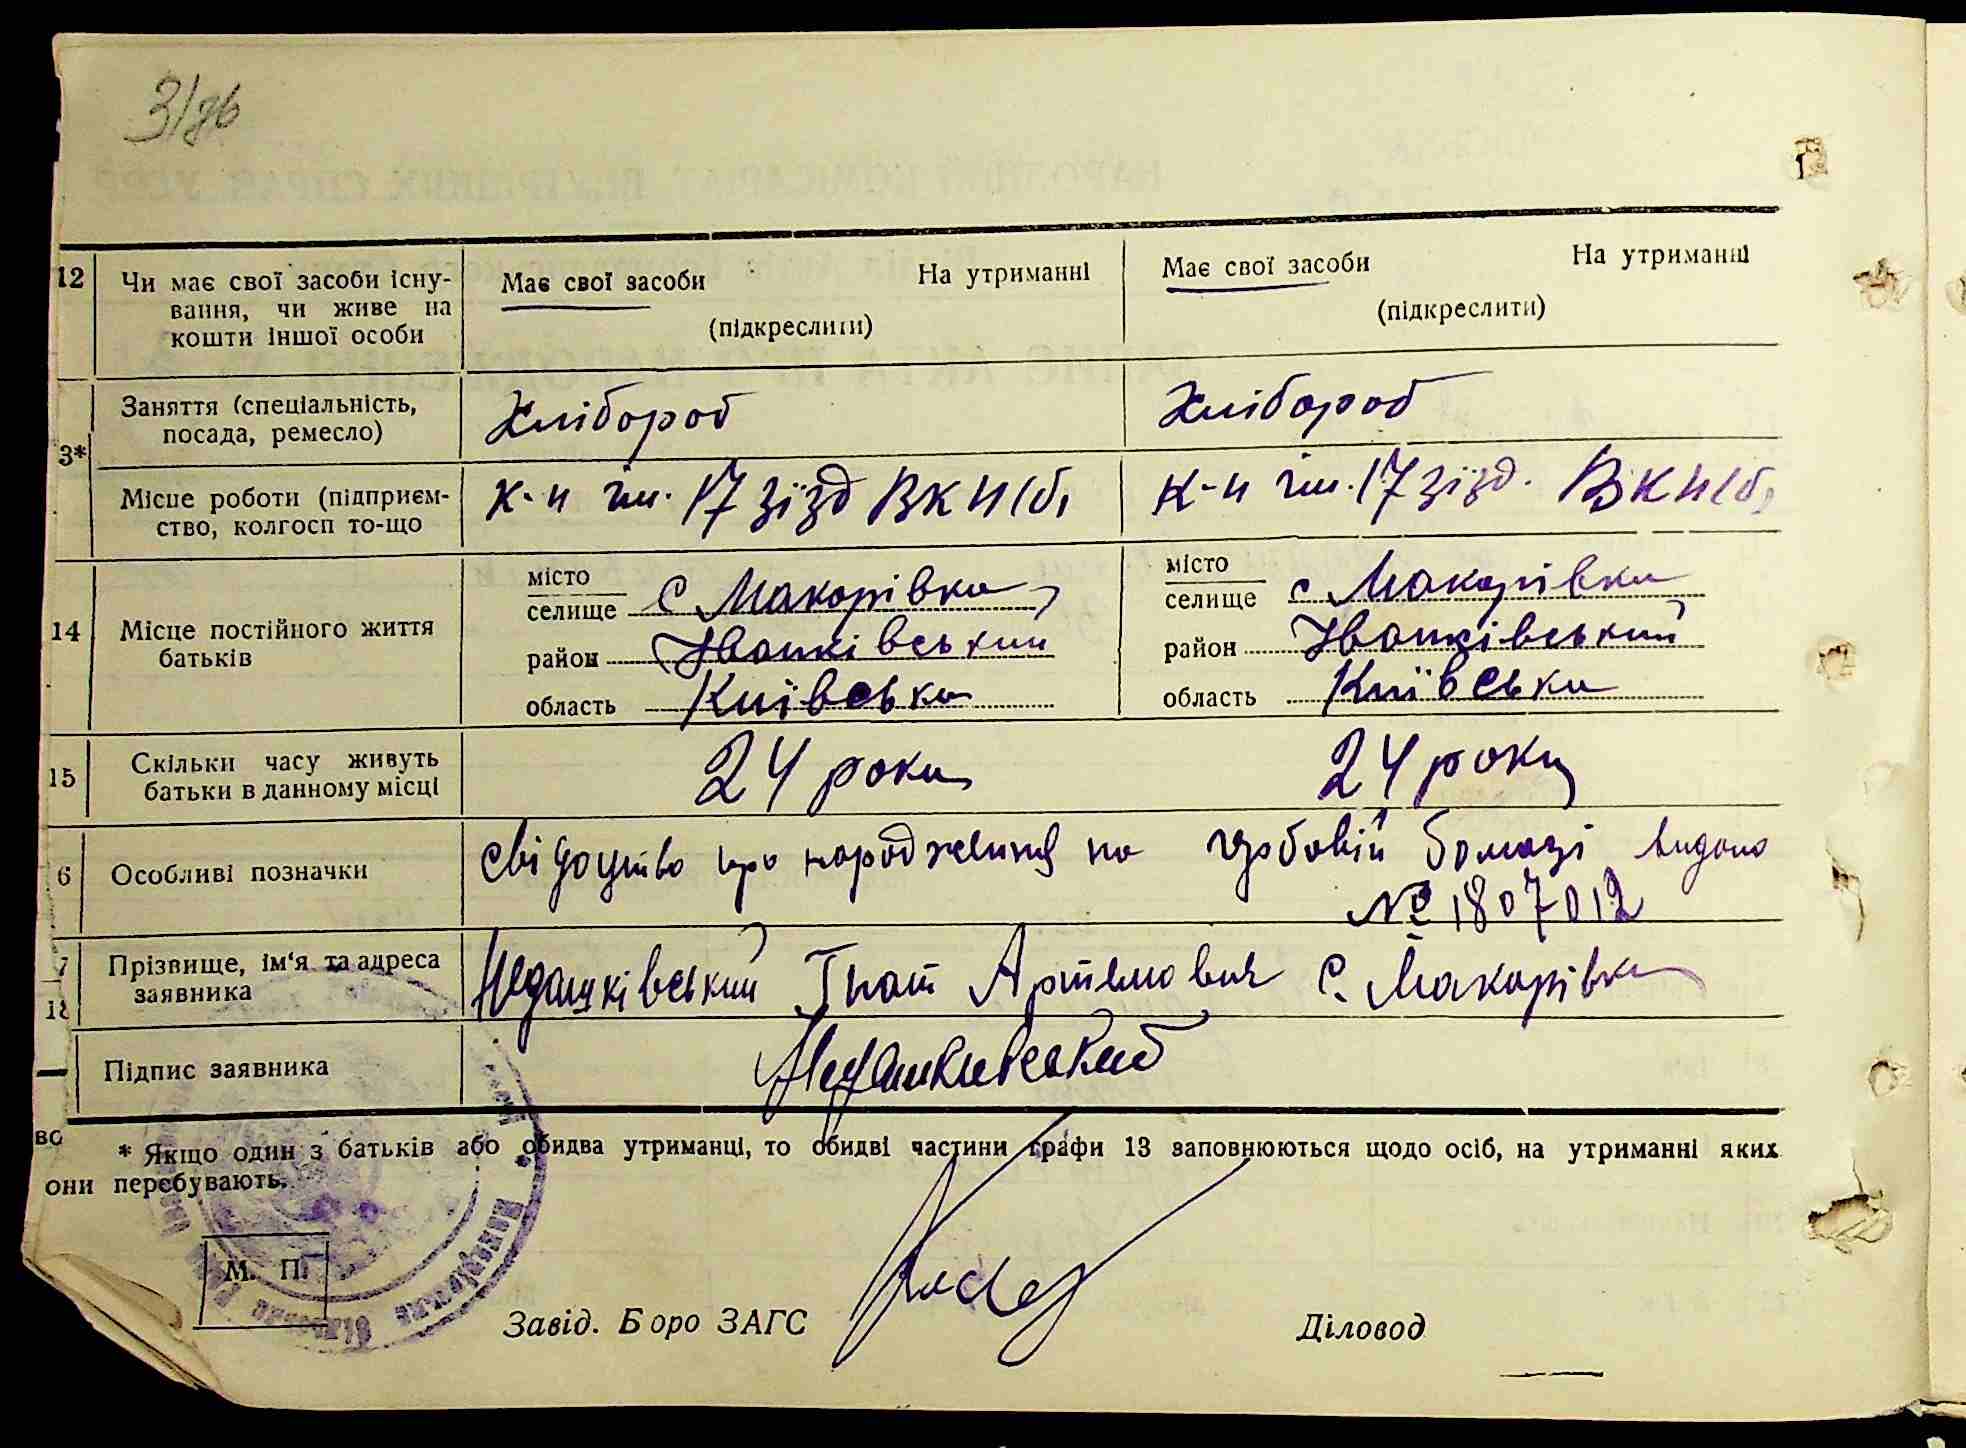 3/
12 Чи має свої засоби існу- Має свої засоби На утриманні Має свої засоби На утриманні
вання, чи живе на (підкреслити) (підкреслити)
кошти іншої особи
3* Заняття (спеціальність, Хлібороб Хлібороб
посада, ремесло)
Місце роботи (підприєм- к-п ім. 17 зїзд ВКП(б) к-п ім. 17 зїзд. ВКП(б)
ство, колгосп то-що
14 Місце постійного життя місто місто
батьків селище с Макарівка селище с Макарівка
район Іванківський район Іванківський
область Київська область Київська
15 Скільки часу живуть 24 роки 24 роки
батьки в данному місці
6 Особливі позначки свідоцтво про народження на гербовій бомазі видано
№ 1807012
7 Прізвище, ім'я та адреса Недашківський Гнат Артемович с. Макарівка
заявника
18
Підпис заявника Недашкивский
во
* Якщо один з батьків або обидва утриманці, то обидві частини графи 13 заповнюються щодо осіб, на утриманні яких
они перебувають.
М. П.
Завід. Боро ЗАГС Діловод